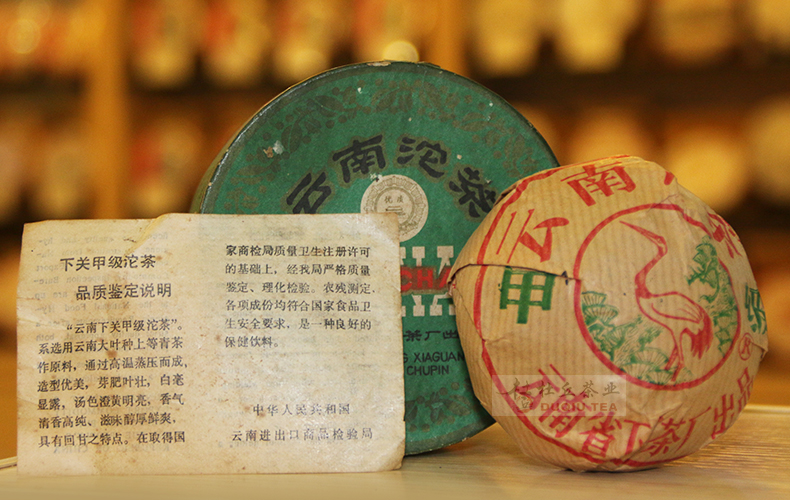 下关甲级沱茶
品质鉴定说明
“云南下关甲级沱茶”。
系选用云南大叶种上等青茶
作原料，通过高温蒸压而成，
造型优美，芽肥叶壮，白毫
显露，汤色澄黄明亮，香气
清香高纯、滋味醇厚鲜爽，
具有回甘之特点。在取得国
家商检局质量卫生注册许可
的基础上，经我局严格质量
鉴定、理化检验。农残测定，
各项成份均符合国家食品卫
生安全要求，是一种良好的
保健饮料。
中华人民共和国
云南进出口商品检验局
云南沱茶
优质
茶厂出
XIAGUAN
CHUPIN
云南
甲级
云南省下茶厂出品
®
杜秋天茶业
DUQIU TEA